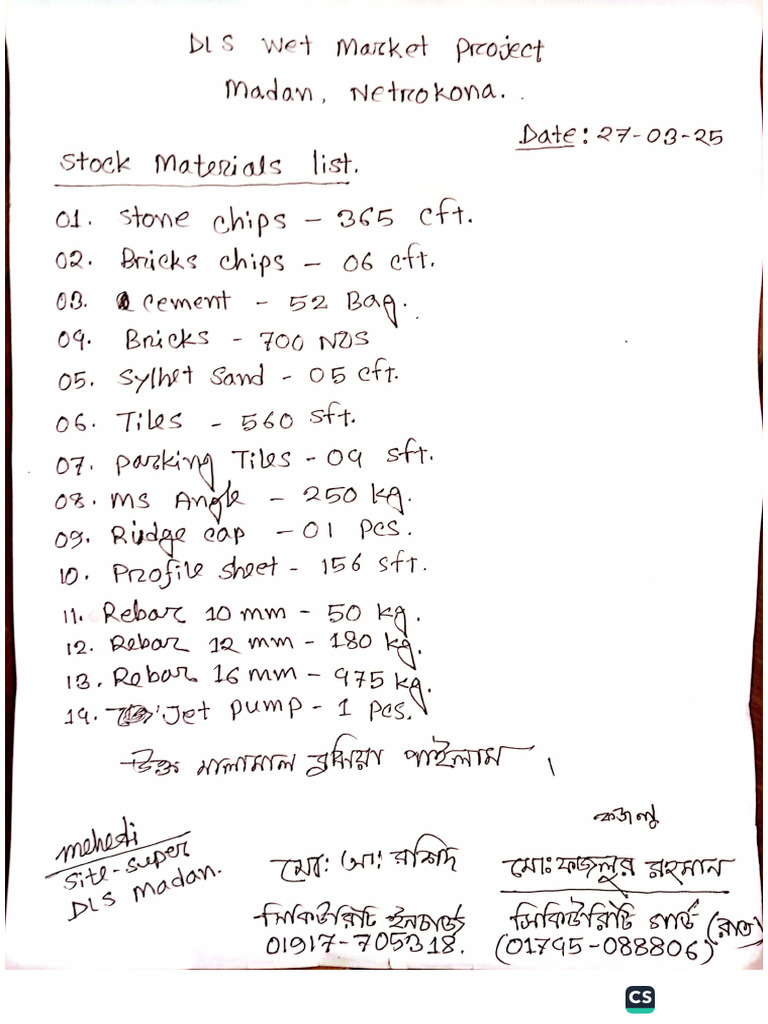 DLS Wet Market Project
Madan, Netrokona.
Date: 27-03-25
Stock Materials list.
01. Stone chips - 365 cft.
02. Bricks chips - 06 cft.
03. cement - 52 Bag.
04. Bricks - 700 NOS
05. Sylhet Sand - 05 cft.
06. Tiles - 560 sft.
07. parking Tiles - 09 sft.
08. MS Angle - 250 kg.
09. Ridge cap - 01 Pcs.
10. Profile sheet - 156 sft.
11. Rebar 10 mm - 50 kg.
12. Rebar 12 mm - 180 kg.
13. Rebar 16 mm - 975 kg.
14. Jet pump - 1 Pcs.
উক্ত মালামাল বুঝিয়া পাইলাম।
mehedi
Site-super
DLS Madan.
মোঃ আঃ রশিদ
সিকিউরিটি ইনচার্জ
01917-705318.
ফজলু
মোঃ ফজলুর রহমান
সিকিউরিটি গার্ড (রাত)
(01795-088806)
CS